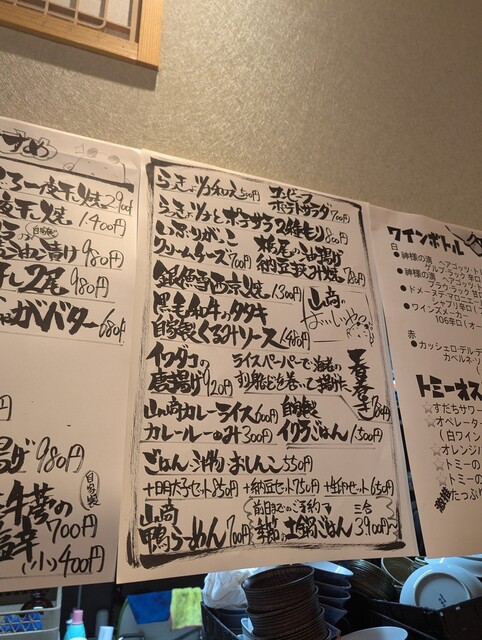 すめ
一夜干し焼 2,900円
夜干し焼 1,400円
自家製
漬け 980円
干し2尾 980円
じゃがバター 680円
円
揚げ 980円
自家製
牛蒡の
塩辛 700円
(小) 400円
らっきょツナ和え 500円
コンビーフ
ポテトサラダ 700円
らっきょツナとポテサラの2種もり 800円
いぶりがっこ
クリームチーズ 700円
栃尾の油揚げ
納豆挟み焼 780円
銀鱈西京焼 1,300円
黒毛和牛のタタキ
自家製くるみソース 1,480円
山崎の
イワダコの
唐揚げ 920円
ライスペーパーで海老の
春巻き 780円
山崎カレーライス 600円
カレールーのみ 300円
自家製
イクラごはん 1,500円
ごはん 汁物 おしんこ 550円
+明太子セット 850円 +納豆セット 750円 +生卵セット 650円
山崎
鴨らーめん 700円
前日までのご予約で
季節の土鍋ごはん 三合 3,900円〜
ワインボトル
白
●神様の滴
●神様の滴
●ドメーヌ
●ワインズメーカー
106年ロ
赤
●カッシェロ・デル・デ
カベルネ・ソ
トミーオス
☆すだちサワー
☆オペレーター
(白ワイン
☆オレンジ
☆トミーの
☆トミーの
たっぷり